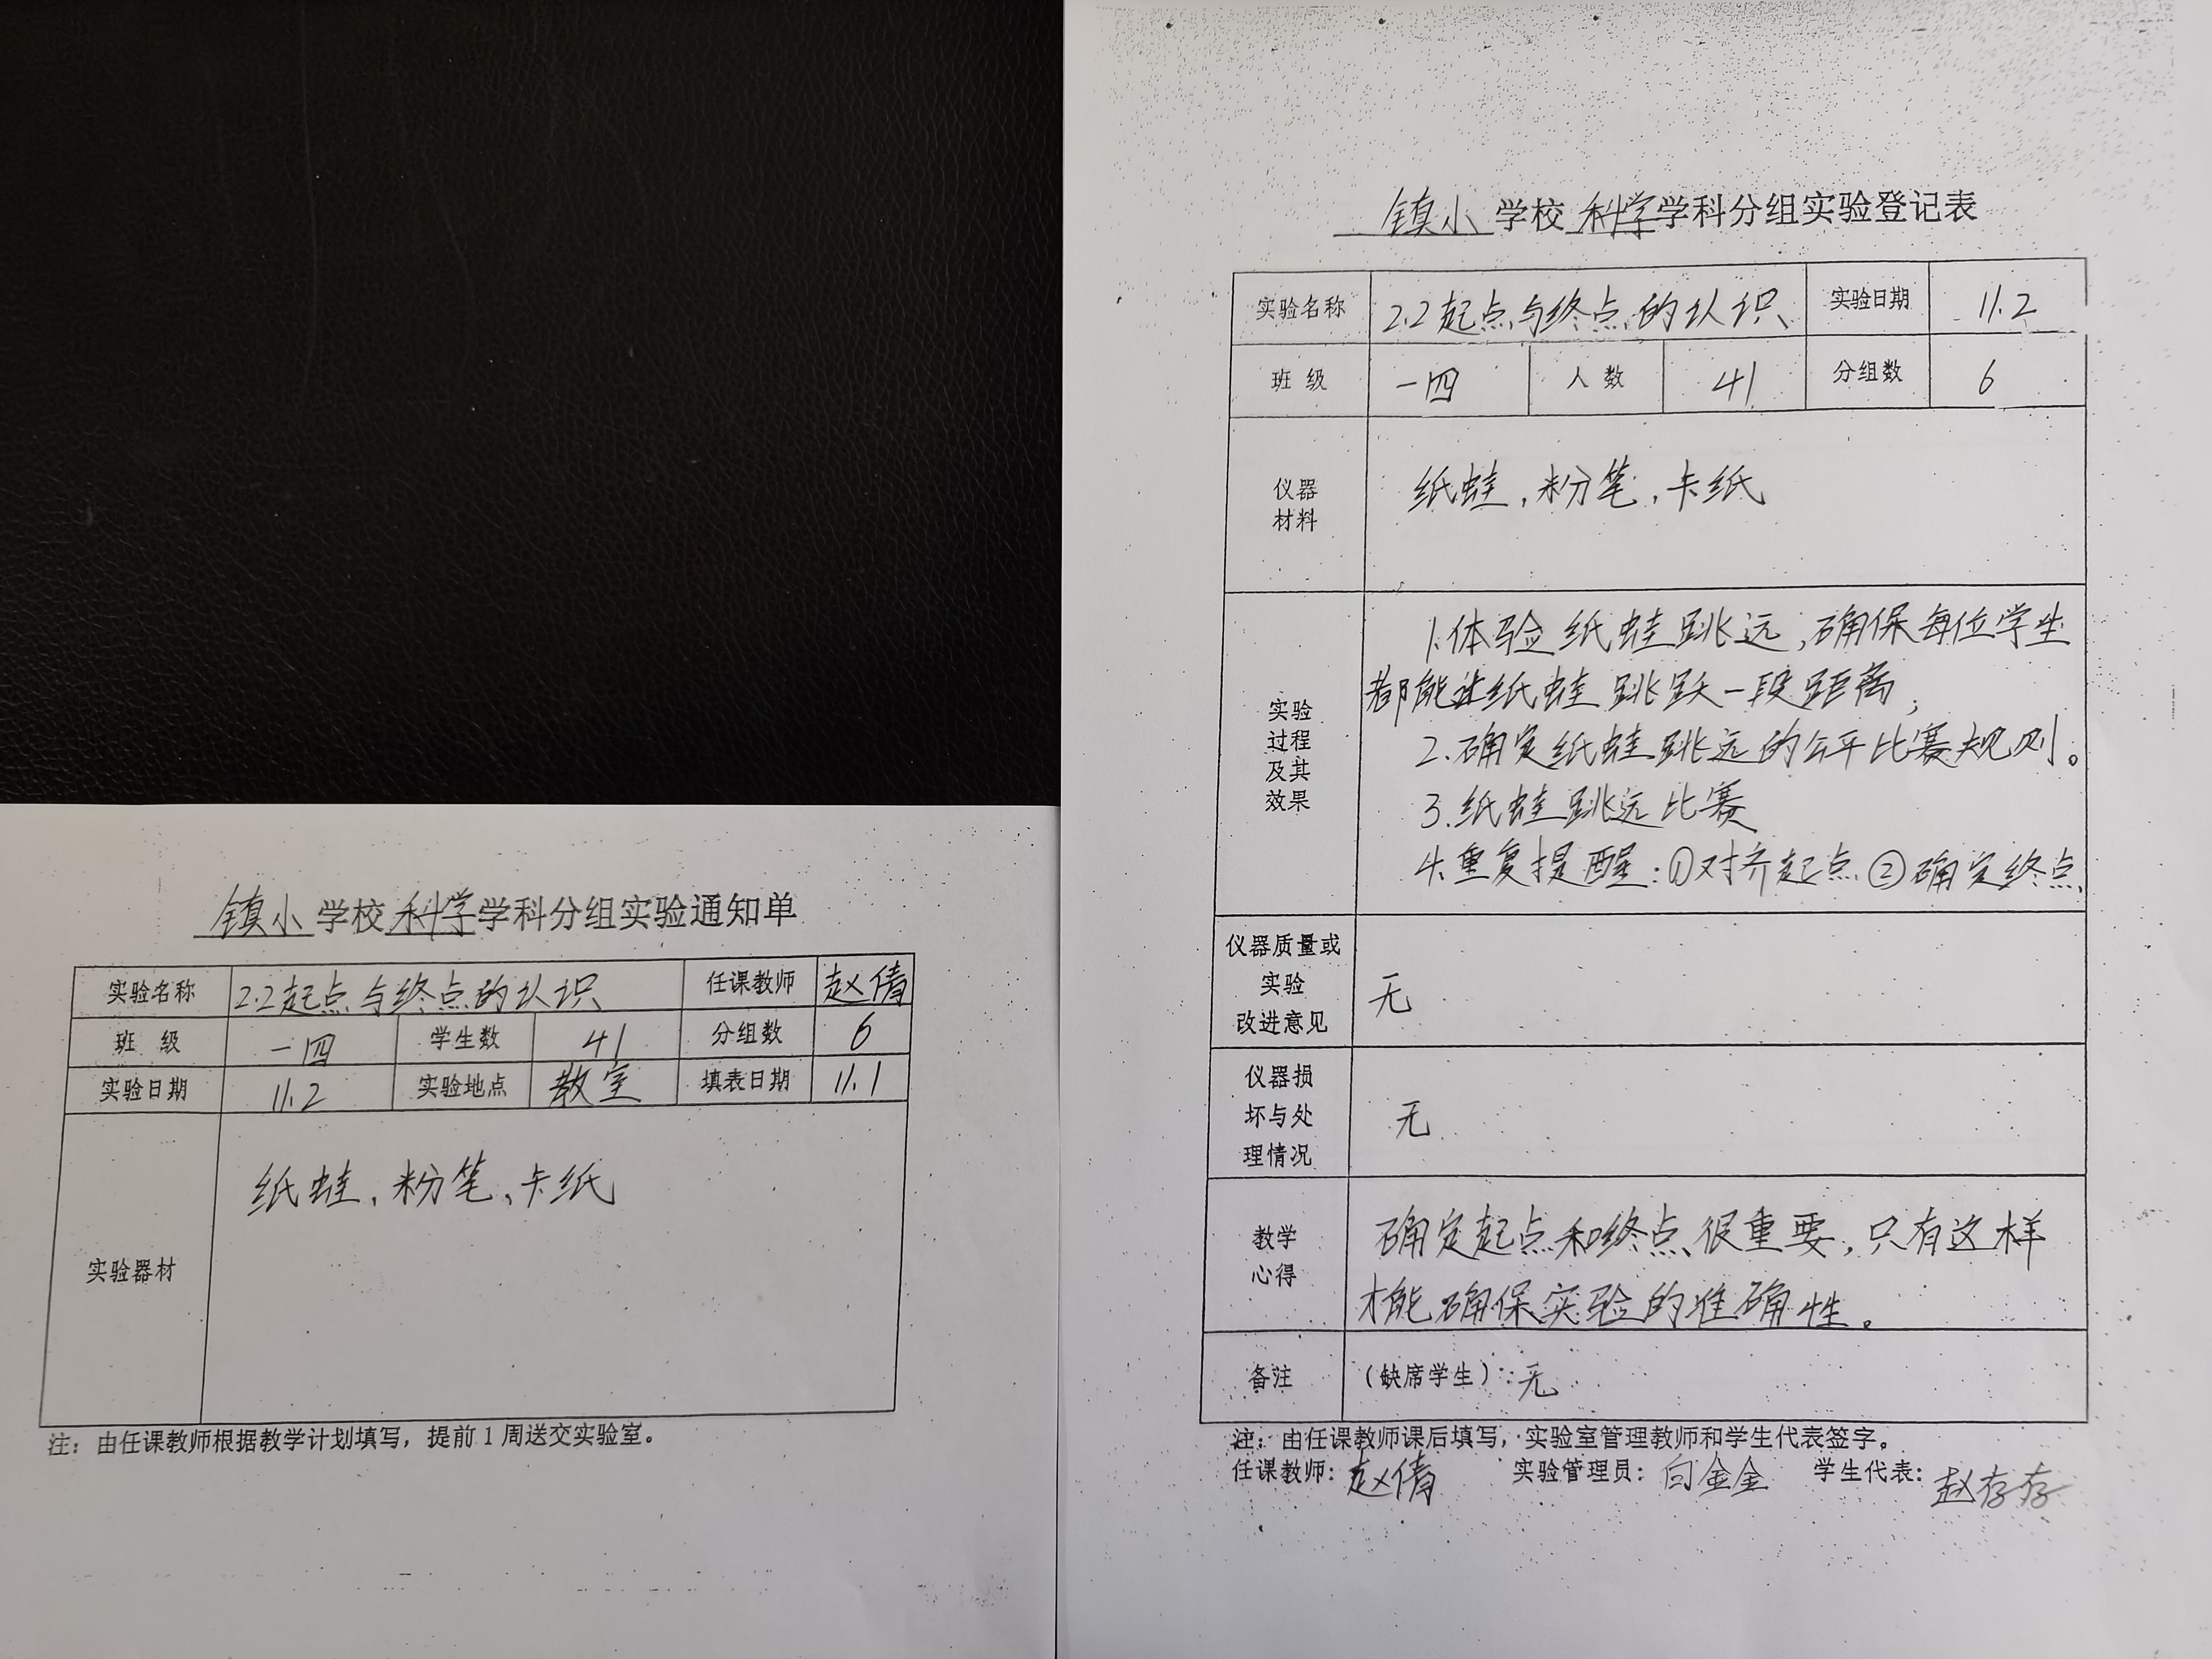 镇小学校科学学科分组实验通知单
实验名称 2.2起点与终点的认识 任课教师 赵倩
班 级 一四 学生数 41 分组数 6
实验日期 11.2 实验地点 教室 填表日期 11.1
实验器材 纸蛙、粉笔、卡纸
注：由任课教师根据教学计划填写，提前1周送交实验室。
镇小学校科学学科分组实验登记表
实验名称 2.2起点与终点的认识 实验日期 11.2
班 级 一四 人 数 41 分组数 6
仪器
材料
纸蛙,粉笔,卡纸
实验
过程
及其
效果
1.体验纸蛙跳远,确保每位学生
都能让纸蛙跳跃一段距离,
2.确定纸蛙跳远的公平比赛规则。
3.纸蛙跳远比赛
4.重复提醒:①对齐起点②确定终点
仪器质量或
实验
改进意见
无
仪器损
坏与处
理情况
无
教学
心得
确定起点和终点很重要,只有这样
才能确保实验的准确性。
备注 (缺席学生):无
注：由任课教师课后填写，实验室管理教师和学生代表签字。
任课教师:赵倩 实验管理员:白金金 学生代表:赵存存